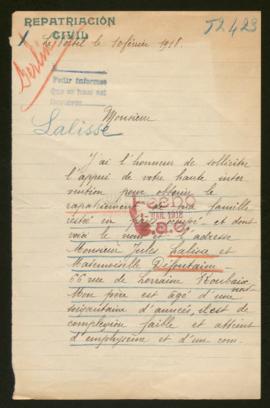 REPATRIACIÓN
CIVIL
52423
le 10 février 1918.
Berlin
Pedir informes
Que se hace así
Lalisse
Monsieur
J'ai l'honneur de solliciter
l'appui de votre haute inter
vention pour obtenir le
rapatriement de ma famille
resté en et dont
voici le nom et l'adresse
Monsieur Jules Lalisse et
Mademoiselle Défontaine
66 rue de Lorraine Roubaix
Nord
Mon père est âgé d'une
soixantaine d'années, il est de
complexion faible et atteint
d'emphysème et d'un com
FECHO
MAR 1918